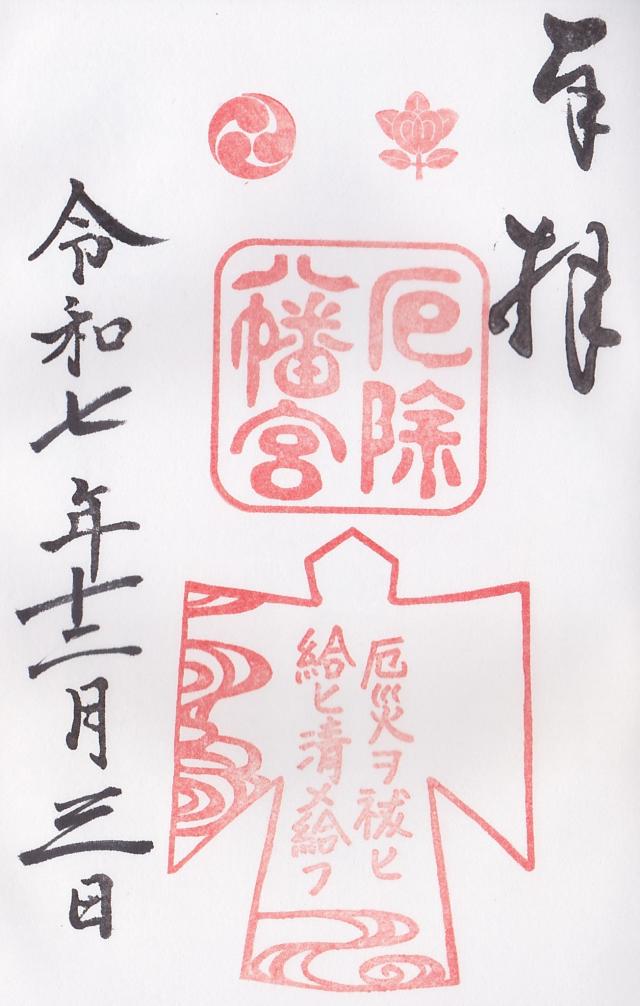 奉拝
厄除
八幡宮
厄災ヲ祓ヒ
給ヒ清メ給フ
令和七年十二月三日